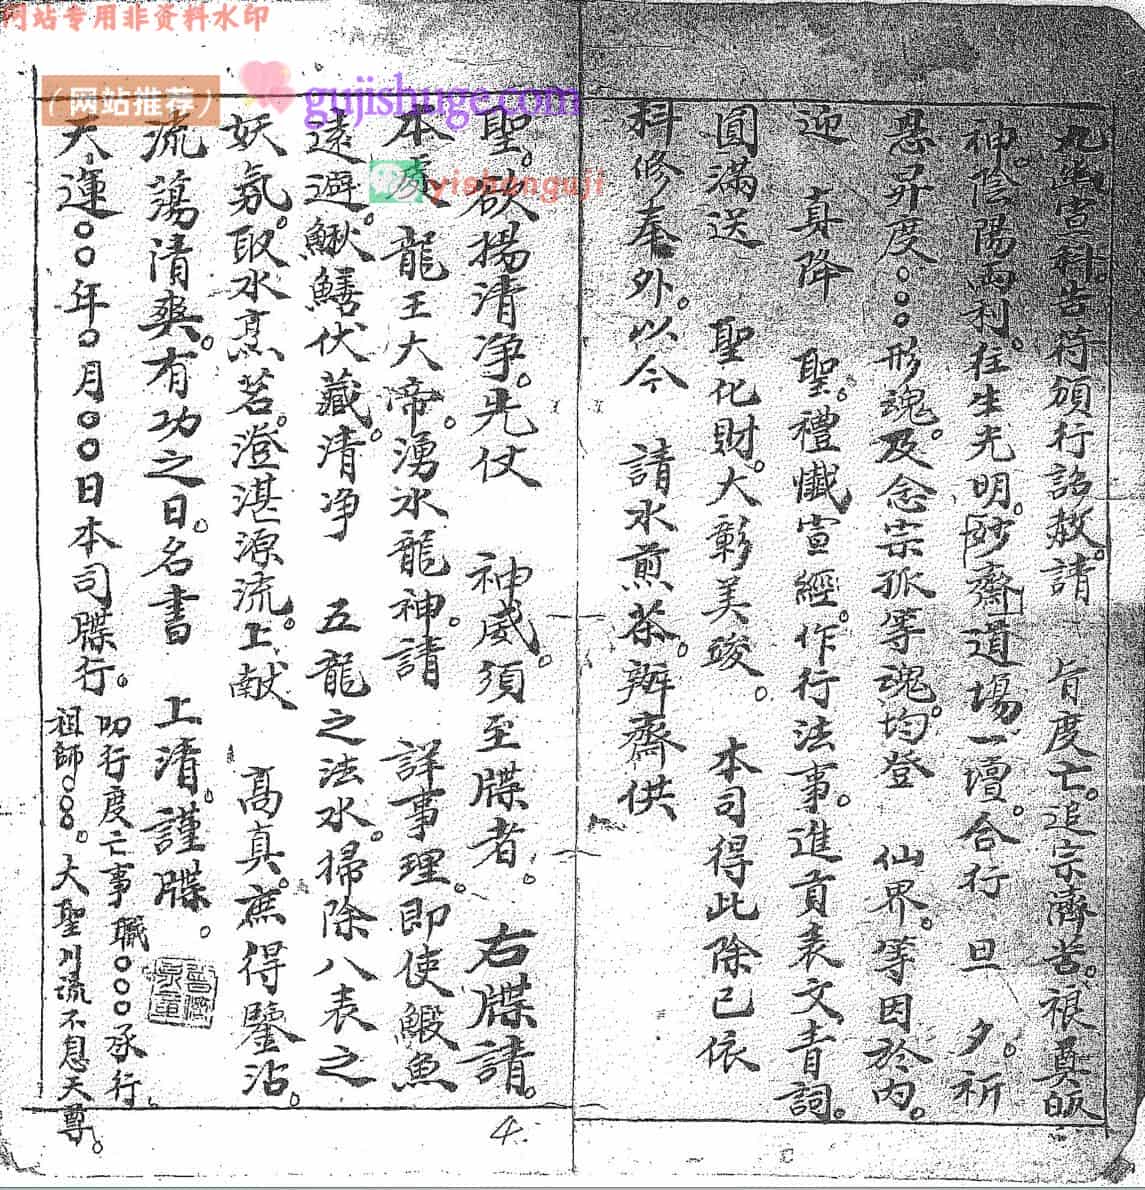 网站专用非资料水印
(网站推荐)
gujishuge.com
yishanguji
宣科。告符頒行詔赦。請 旨度亡。追宗濟苦。
神。陰陽兩利。往生光明。齋道場一壇。合行 旦夕。祈
恩昇度。○○形魂。及念宗孤等魂。均登 仙界。等因於內。
迎 真降 聖。禮懺宣經。作行法事。進貢表文青詞。
圓滿送 聖化財。大彰美竣。 本司得此除已依
科修奉外。以今 請水煎茶。辦齋供
聖。欲揚清净。先仗 神威。須至牒者。 右牒請。
本處 龍王大帝。湧水龍神。請 詳事理。即使鰕魚
遠避。鰍鱔伏藏。清净 五龍之法水。掃除八表之
妖氛。取水烹茗。澄湛源流。上献 高真。庶得鑒沾。
流蕩清爽。有功之日。名書 上清。謹牒。
天運○○年○月○○日本司牒行。
叨行度亡事 職○○○承行。
祖師○○○。大聖川流不息天尊。
4